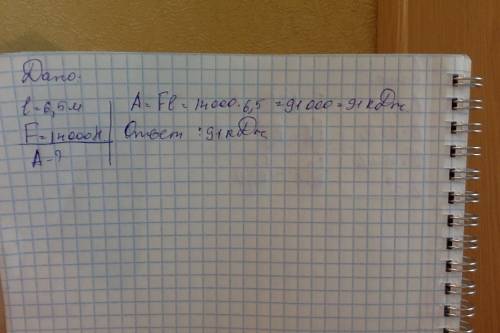 Дано:
l = 6,5 м A = Fl = 14000·6,5 = 91000 = 91 кДж
F = 14000 Н Ответ: 91 кДж
A - ?